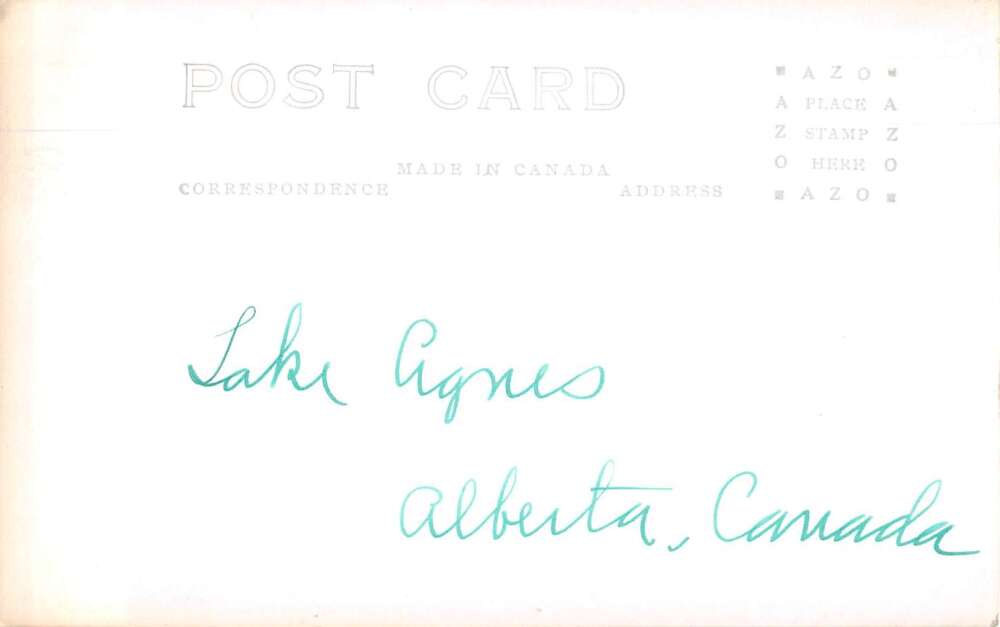 POST CARD
MADE IN CANADA
CORRESPONDENCE
ADDRESS
AZO
A PLACE A
Z STAMP Z
O HERE O
AZO
Lake Agnes
Alberta, Canada